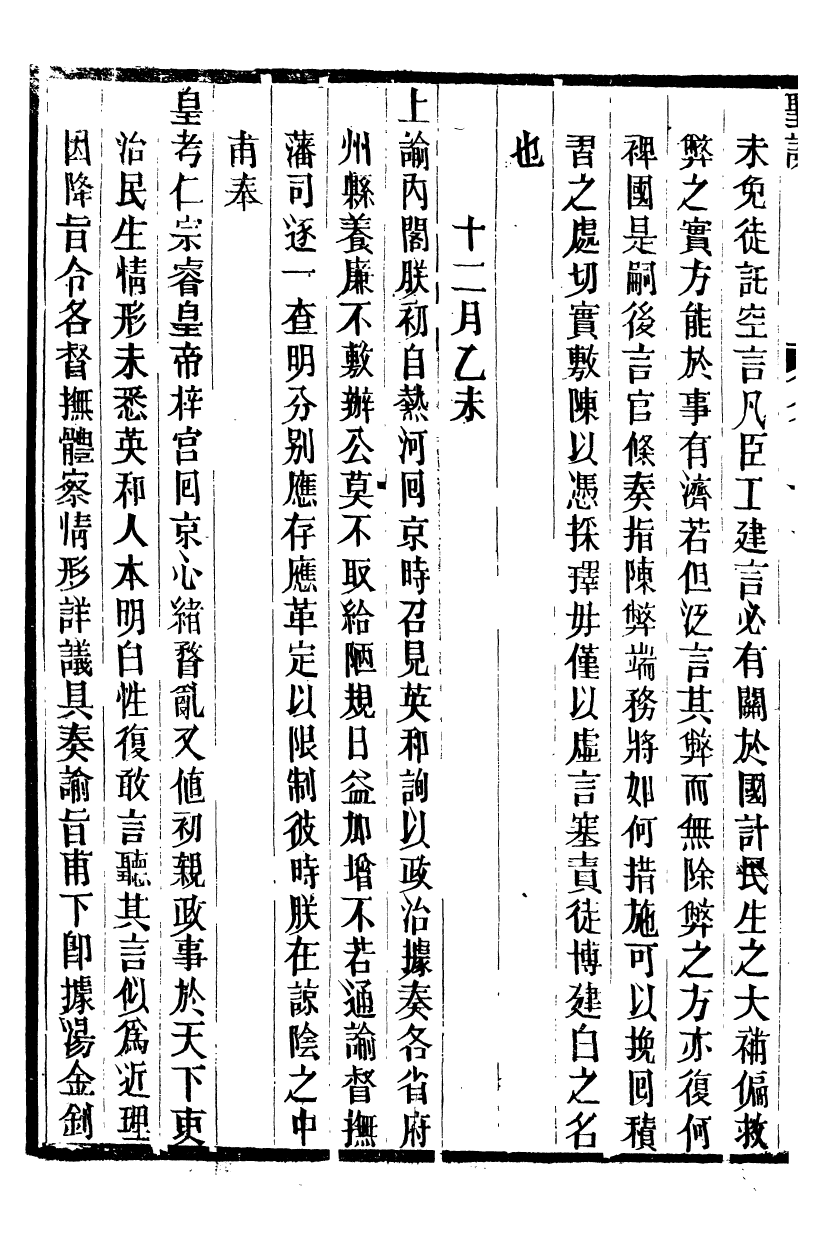 未免徒託空言凡臣工建言必有關於國計民生之大補偏救
弊之實方能於事有濟若但泛言其弊而無除弊之方亦復何
裨國是嗣後言官條奏指陳弊端務將如何措施可以挽回積
習之處切實敷陳以憑採擇毋僅以虛言塞責徒博建白之名
也
十二月乙未
上諭內閣朕初自熱河回京時召見英和詢以政治據奏各省府
州縣養廉不敷辦公莫不取給陋規日益加增不若通諭督撫
藩司逐一查明分別應存應革定以限制彼時朕在諒陰之中
甫奉
皇考仁宗睿皇帝梓宮回京心緒瞀亂又值初親政事於天下吏
治民生情形未悉英和人本明白性復敢言聽其言似為近理
因降旨令各督撫體察情形詳議具奏諭旨甫下即據湯金釗